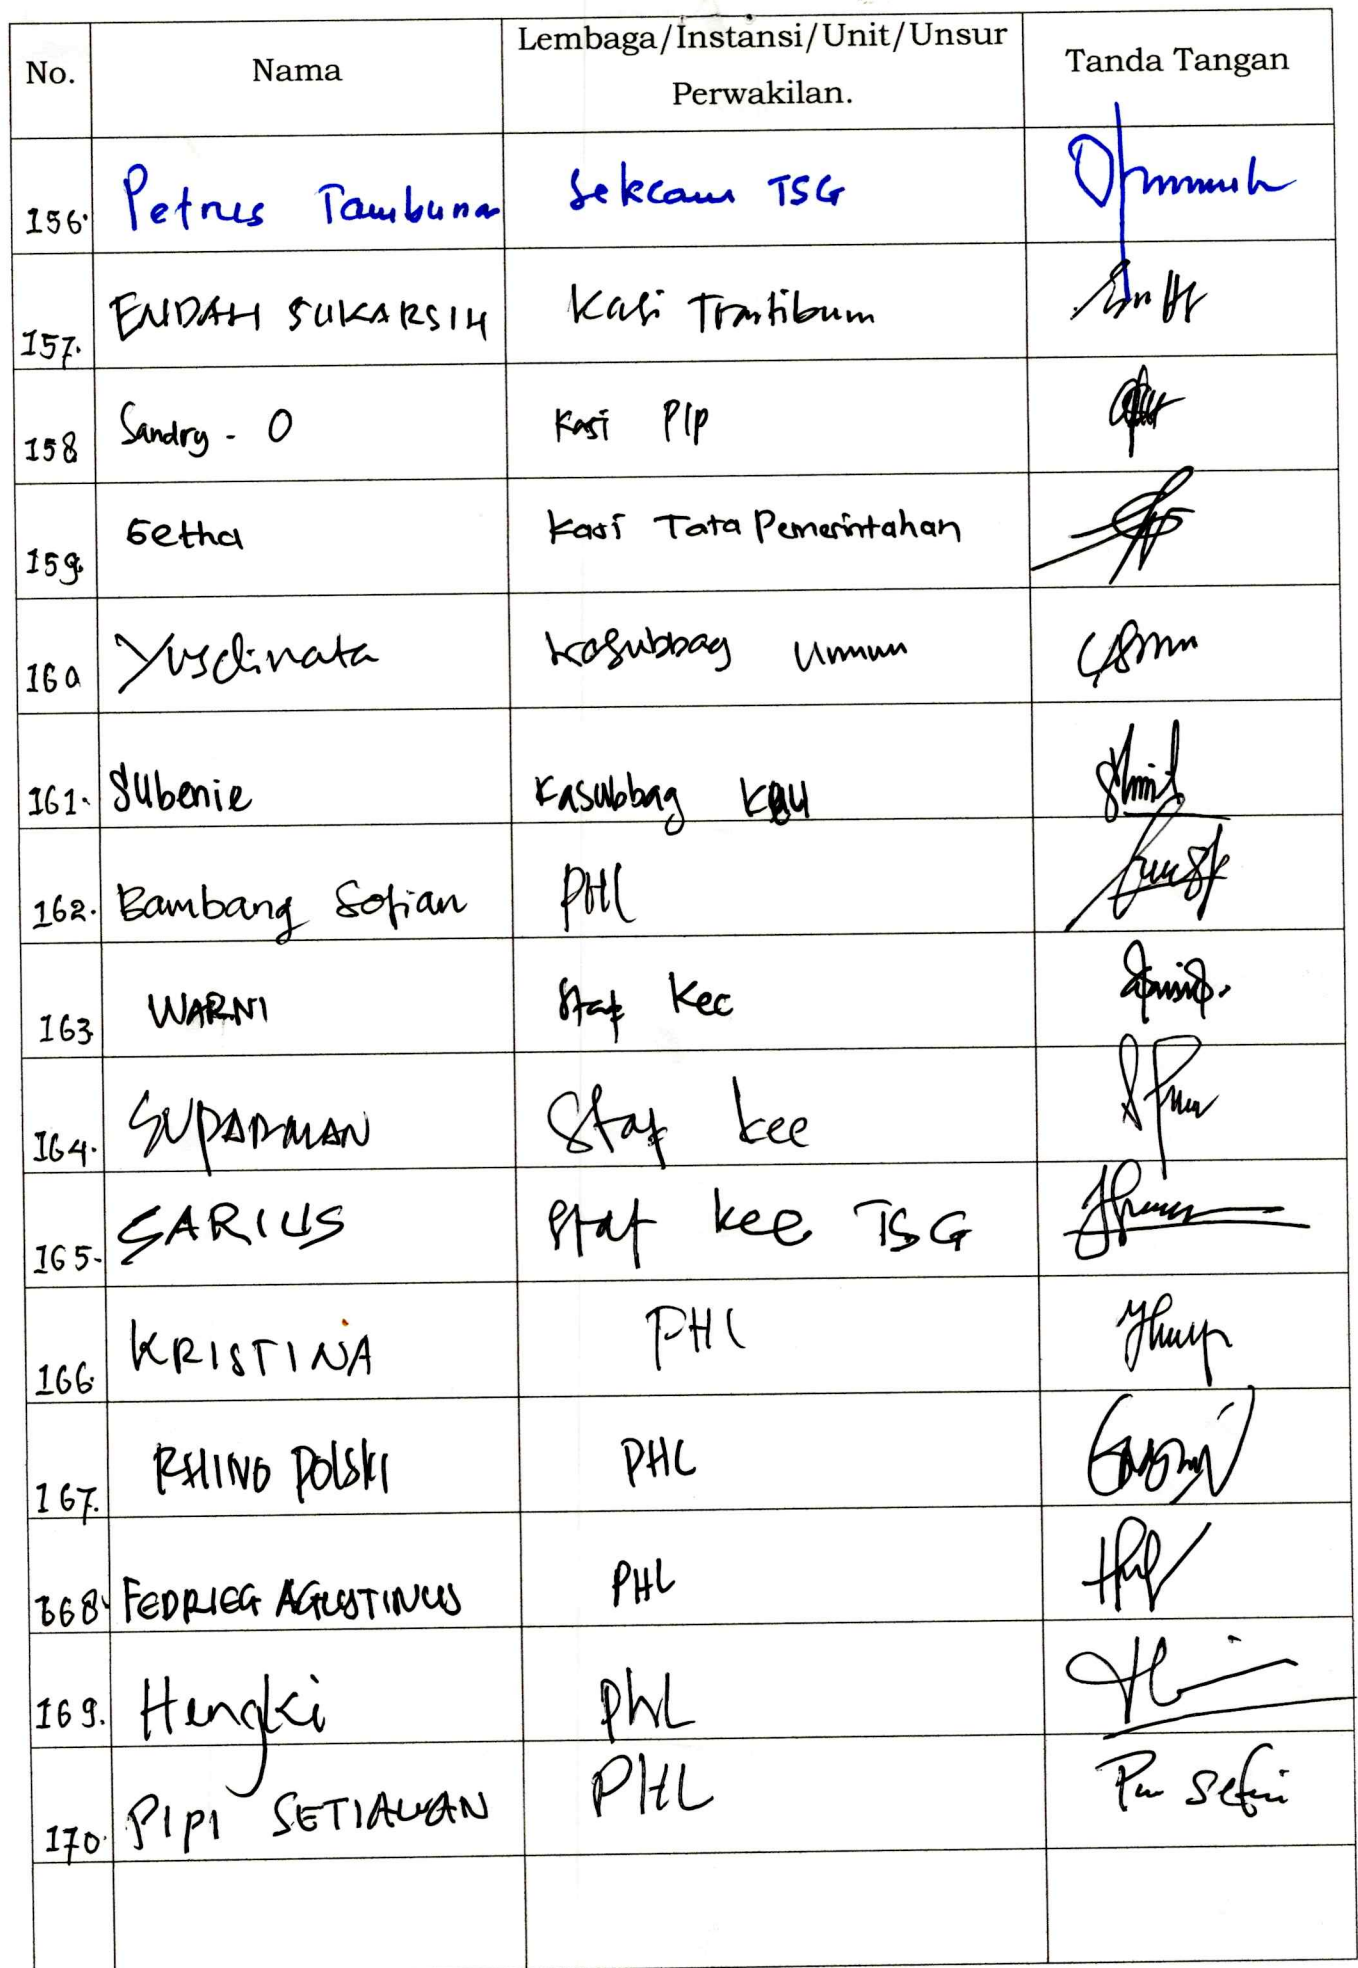 No. Nama Lembaga/Instansi/Unit/Unsur Perwakilan. Tanda Tangan
156. Petrus Tambunan Sekcam TSG
157. ENDAH SUKARSIH Kasi Trantibum
158 Sandry - O Kasi PIP
159. Getha Kasi Tata Pemerintahan
160 Yusdinata Kasubbag Umum
161. Subenie Kasubbag Keu
162. Bambang Sofian PHL
163 WARNI Staf Kec
164. SUPARMAN Staf kec
165. SARIUS Staf kec TSG
166. KRISTINA PHL
167. RHINO POLSKI PHL
168. FEDRIEG AGUSTINUS PHL
169. Hengki PHL
170. PIPI SETIAWAN PHL